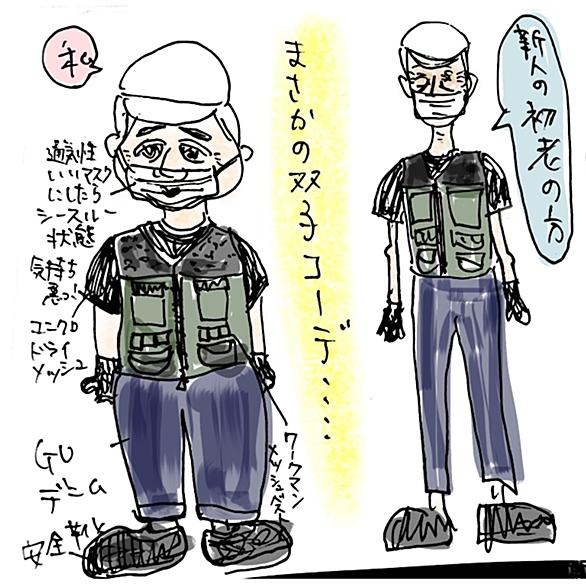 私
通気性
いいマスク
にしたら
シースルー
状態
気持ち
悪っ!
ユニクロ
ドライ
メッシュ
GU
デニム
安全靴
ワークマン
メッシュベスト
まさかの双子コーデ・・・・
新人の初老の方